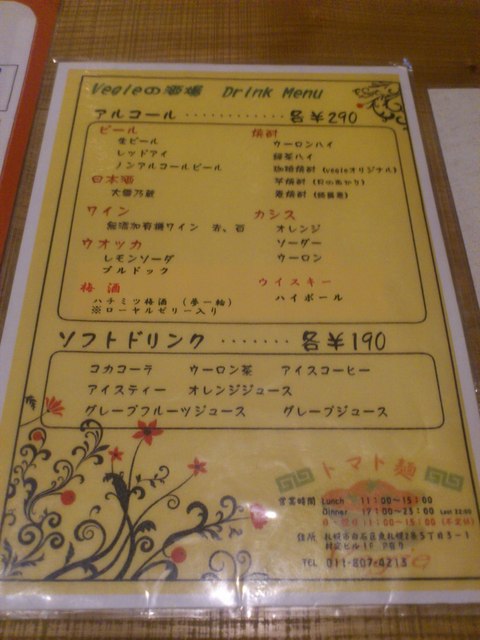 Vegieの酒場 Drink Menu
アルコール ・・・・・・・・・・・・ 各¥290
ビール
生ビール
レッドアイ
ノンアルコールビール
日本酒
大雪乃蔵
ワイン
無添加有機ワイン 赤、白
ウオッカ
レモンソーダ
ブルドック
梅酒
ハチミツ梅酒 (夢一輪)
※ローヤルゼリー入り
焼酎
ウーロンハイ
緑茶ハイ
珈琲焼酎 (vegieオリジナル)
芋焼酎
麦焼酎
カシス
オレンジ
ソーダー
ウーロン
ウイスキー
ハイボール
ソフトドリンク ・・・・・・・ 各¥190
コカコーラ ウーロン茶 アイスコーヒー
アイスティー オレンジジュース
グレープフルーツジュース グレープジュース
トマト麺
営業時間 Lunch 11:00~15:00
Dinner 17:00~23:00 Last 22:00
11:00~15:00 (不定休)
住所 札幌市白石区東札幌2条5丁目3-1
ビル1F
TEL 011-807-4213